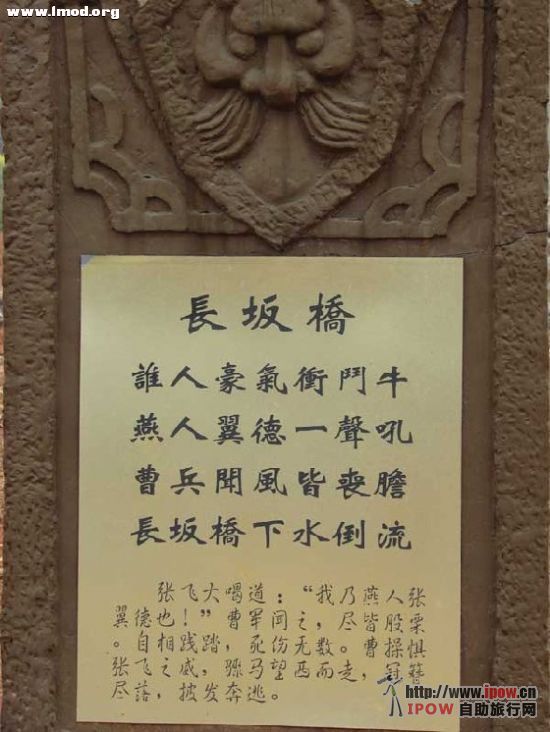 www.lmod.org
長坂橋
誰人豪氣衝鬥牛
燕人翼德一聲吼
曹兵聞風皆喪膽
長坂橋下水倒流
张飞大喝道：“我乃燕人张
翼德也！”曹军闻之，尽皆股栗
。自相践踏，死伤无数。曹操惧
张飞之威，骤马望西而走，冠簪
尽落，披发奔逃。
http://www.ipow.cn
IPOW 自助旅行网